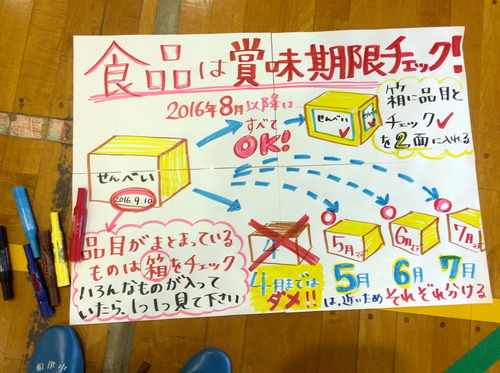 食品は賞味期限チェック!
2016年8月以降は…
すべて
OK!
せんべい
箱に品目と
チェック✓
を2面に入れる
せんべい
2016.9.10
品目がまとまっている
ものは箱をチェック
いろんなものが入って
いたら、1つ1つ見て下さい
4
5月まで
6月まで
7月まで
4月までは
ダメ!!
5月 6月 7月
は、近いため それぞれ分ける